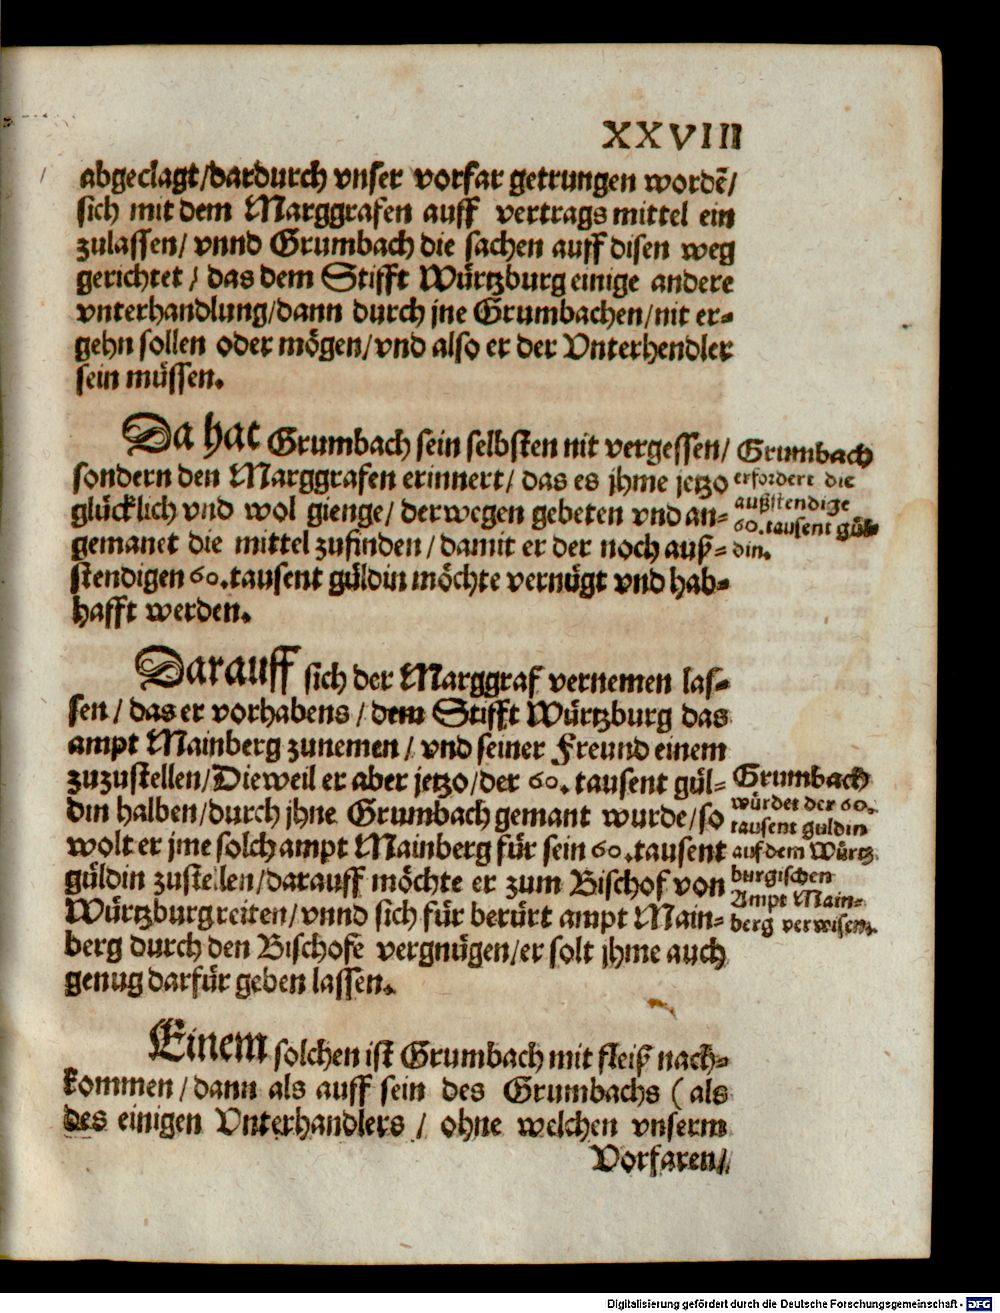 XXVIII
abgeclagt/dardurch vnser vorfar getrungen wordẽ/
sich mit dem Marggrafen auff vertrags mittel ein
zulassen/ vnnd Grumbach die sachen auff disen weg
gerichtet/ das dem Stifft Würtzburg einige andere
vnterhandlung/dann durch jne Grumbachen/nit er-
gehn sollen oder mögen/vnd also er der Vnterhendler
sein müssen.
Da hat Grumbach sein selbsten nit vergessen/
sondern den Marggrafen erinnert/ das es jhme jetzo
glücklich vnd wol gienge/ derwegen gebeten vnd an-
gemanet die mittel zufinden/damit er der noch auß-
stendigen 60.tausent güldin möchte vernügt vnd hab-
hafft werden.
Grumbach
erfordert die
außstendige
60.tausent gül-
din.
Darauff sich der Marggraf vernemen las-
sen/ das er vorhabens/ dem Stifft Würtzburg das
ampt Mainberg zunemen/ vnd seiner Freund einem
zuzustellen/Dieweil er aber jetzo/der 60. tausent gül-
din halben/durch jhne Grumbach gemant wurde/so
wolt er jme solch ampt Mainberg für sein 60.tausent
güldin zustellen/darauff möchte er zum Bischof von
Würtzburg reiten/vnnd sich für berürt ampt Main-
berg durch den Bischofe vergnügen/er solt jhme auch
genug darfür geben lassen.
Grumbach
würdet der 60.
tausent guldin
auf dem Würtz
burgischen
Ampt Main-
berg verwisem.
Einem solchen ist Grumbach mit fleiß nach-
kommen/dann als auff sein des Grumbachs (als
des einigen Vnterhandlers/ ohne welchen vnserm
Vorfaren/
Digitalisierung gefördert durch die Deutsche Forschungsgemeinschaft - DFG